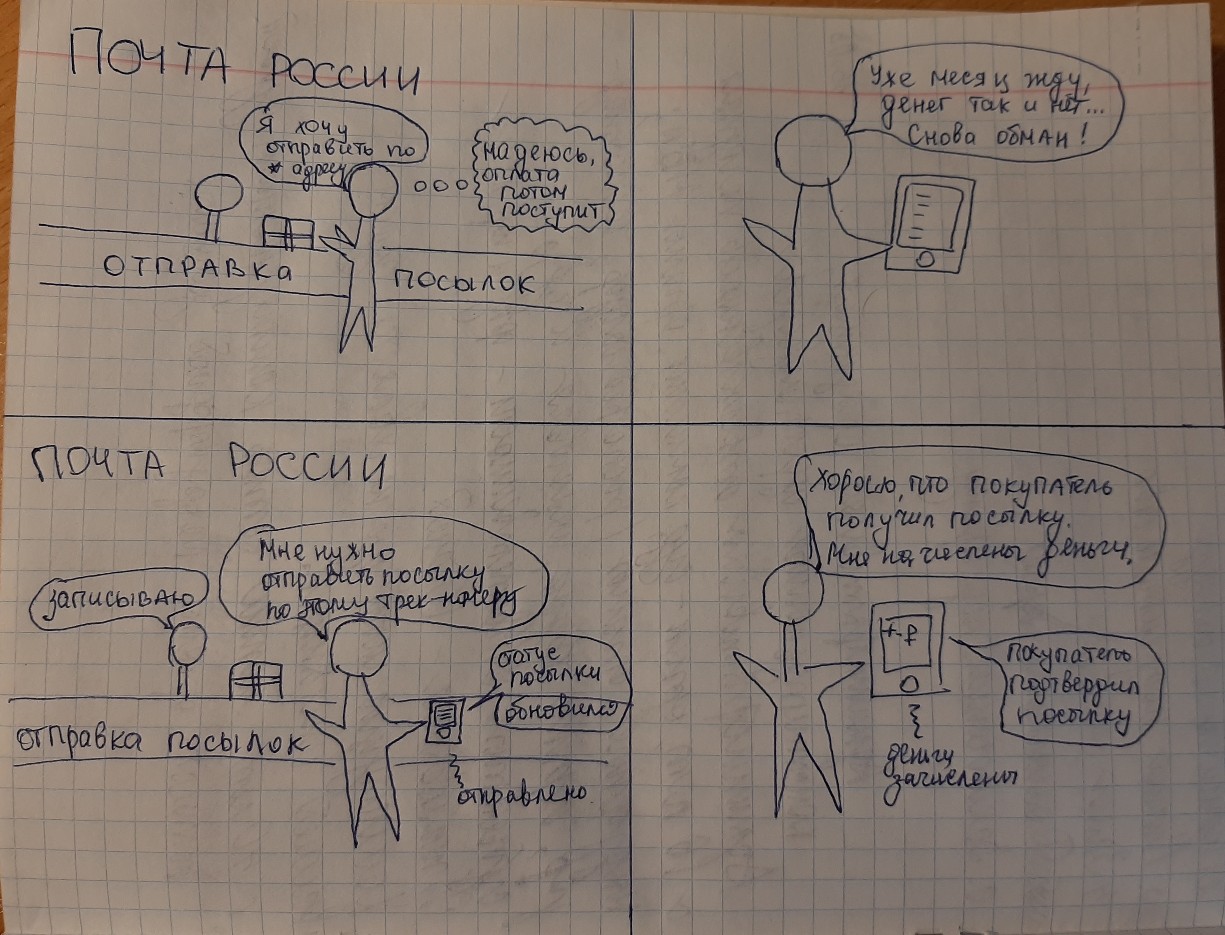 ПОЧТА РОССИИ
Я хочу
отправить по
адресу
надеюсь,
оплата
потом
поступит
ОТПРАВКА ПОСЫЛОК
Уже месяц жду,
денег так и нет...
Снова обман!
ПОЧТА РОССИИ
записываю
Мне нужно
отправить посылку
по этому трек-номеру
статус
посылки
обновился
отправка посылок
отправлено
Хорошо, что покупатель
получил посылку.
Мне начислены деньги.
+ ₽
покупатель
подтвердил
посылку
деньги
зачислены